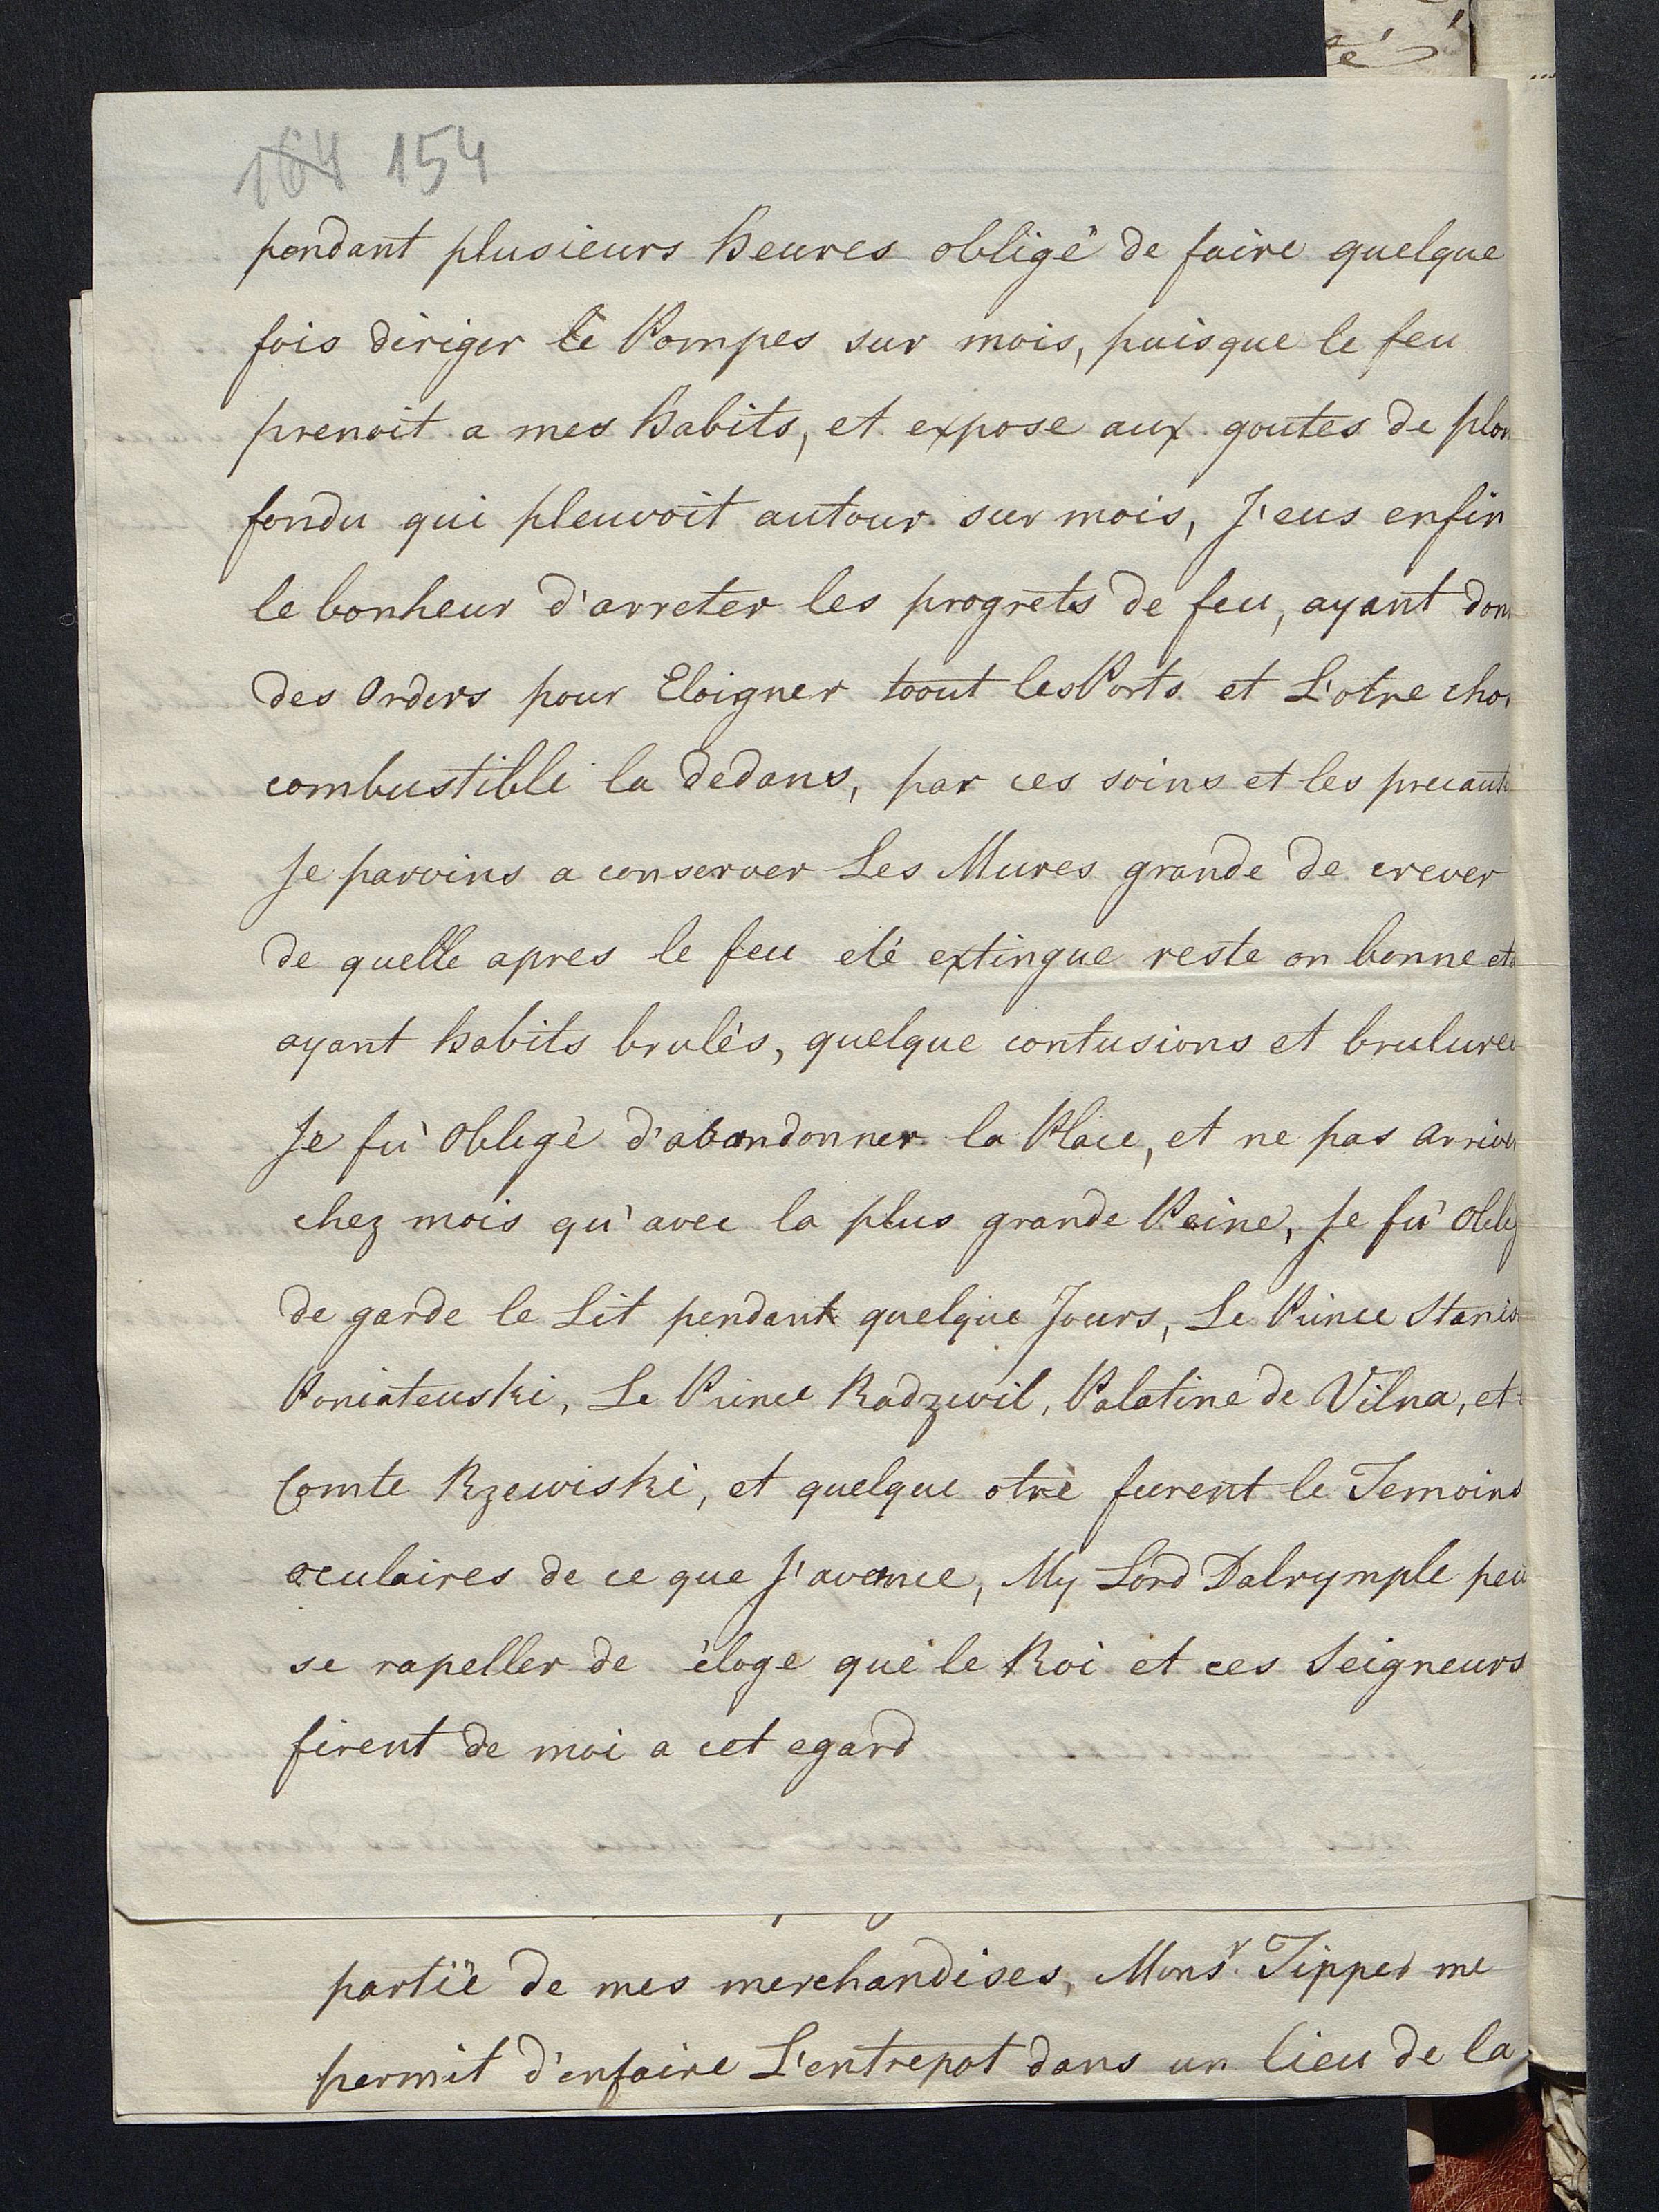 164 154
pendant plusieurs heures obligé de faire quelque
fois diriger le Pompes sur mois, puisque le feu
prenoit a mes habits, et expose aux goutes de plom
fondu qui pleuvoit autour sur mois, J'eus enfin
le bonheur d'arreter les progrets de feu, ayant don
des Orders pour Eloigner toout les Ports et L'otre cho
combustible la dedans, par ces soins et les precaut
Je parvins a conserver Les Mures grande de crever
de quelle apres le feu eté extingue reste on bonne et
ayant habits brulés, quelque contusions et brulures
Je fu' Obligé d'abandonner la Place, et ne pas arrive
chez mois qu'avec la plus grande Peine, Je fu' Oblig
de garde le Lit pendant quelque Jours, Le Prince Stanis
Poniateuski, Le Prince Radzivil, Palatine de Vilna, et
Comte Rzewiski, et quelque otre furent le Temoins
oculaires de ce que J'avance, My Lord Dalrymple peu
se rapeller de éloge que le Roi et ces Seigneurs
firent de moi a cet egard
partië de mes merchandises, Monsr. Tipper me
permit d'enfaire L'entrepot dans un lieu de la
té